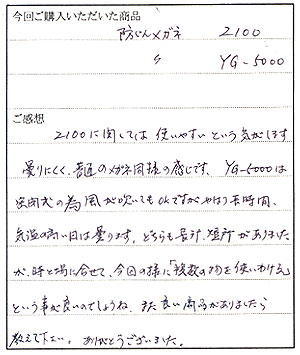 今回ご購入いただいた商品
防じんメガネ 2100
〃 YG-5000
ご感想
2100に関しては使いやすいという気がします
曇りにくく、普通のメガネ同様の感じです。YG-5000は
密閉式の為風が吹いてもOKですがやはり長時間、
気温の高い日は曇ります。どちらも長所、短所がありました
が、時と場に合せて、今回の様に「複数の物を使いわける」
という事が良いのでしょうね。また良い商品がありましたら
教えて下さい。ありがとうございました。